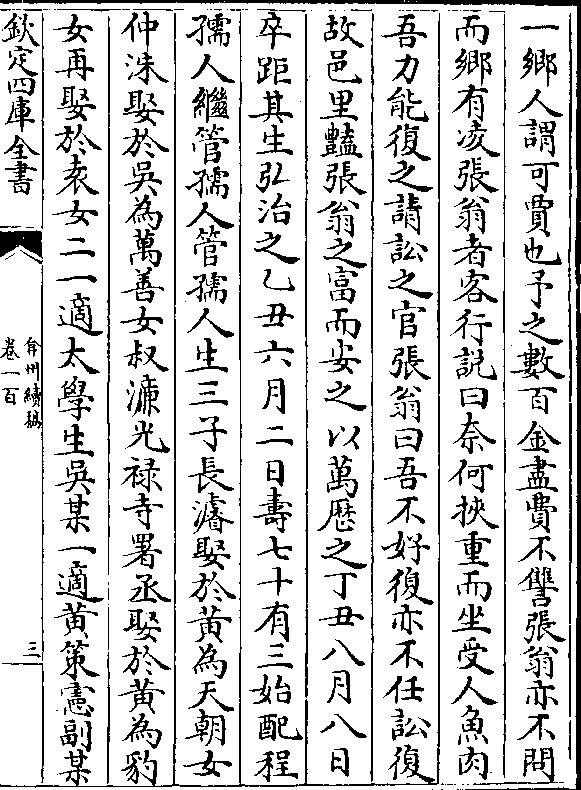 一鄉人謂可賈也予之數百金盡費不讐張翁亦不問
而鄉有凌張翁者客行説曰奈何挾重而坐受人魚肉
吾力能復之請訟之官張翁曰吾不好復亦不任訟復
故邑里豔張翁之富而安之以萬厯之丁丑八月八日
卒距其生弘治之乙丑六月二日壽七十有三始配程
孺人繼管孺人管孺人生三子長濬娶於黄為天朝女
仲洙娶於吳為萬善女叔濂光禄寺署丞娶於黄為豹
女再娶於袁女二一適太學生吳某一適黄策憲副某
欽定四庫全書
弇州續稿
卷一百
三